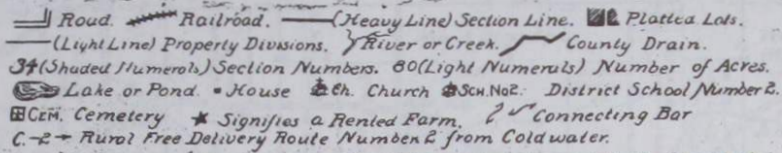 Road. Railroad. (Heavy Line) Section Line. Platted Lots.
(Light Line) Property Divisions. River or Creek. County Drain.
34 (Shaded Numerals) Section Numbers. 80 (Light Numerals) Number of Acres.
Lake or Pond. House Ch. Church Sch.No2. District School Number 2.
Cem. Cemetery ★ Signifies a Rented Farm. Connecting Bar
C.-2 → Rural Free Delivery Route Number 2 from Coldwater.